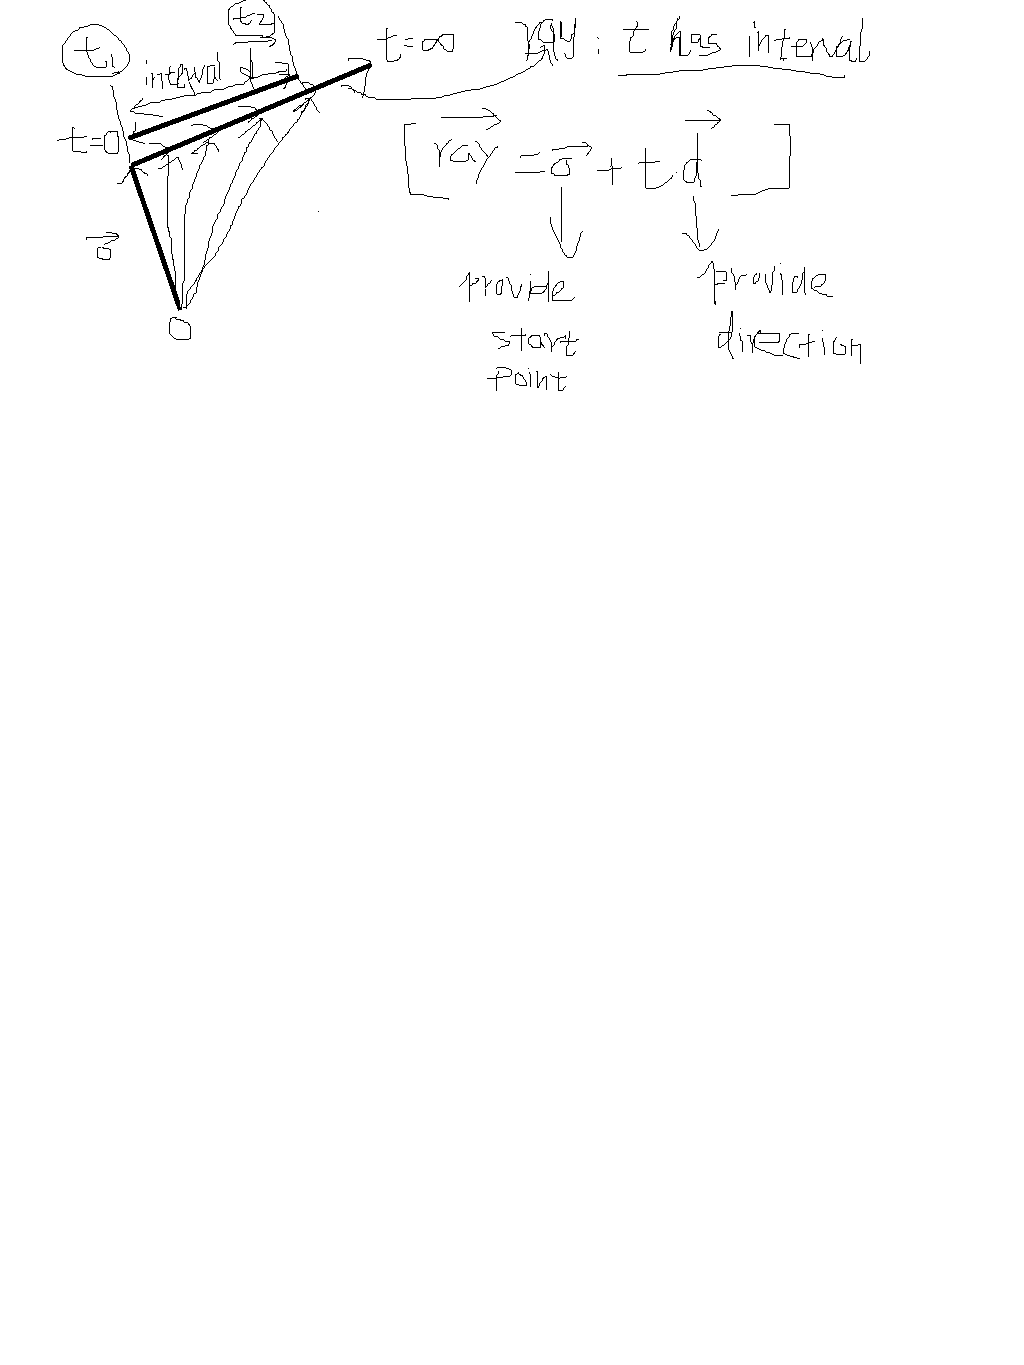 t₁
t₂
interval
t=0
t=∞
ray : t has interval
[ ray = o + t d ]
o
O
provide
start
point
provide
direction